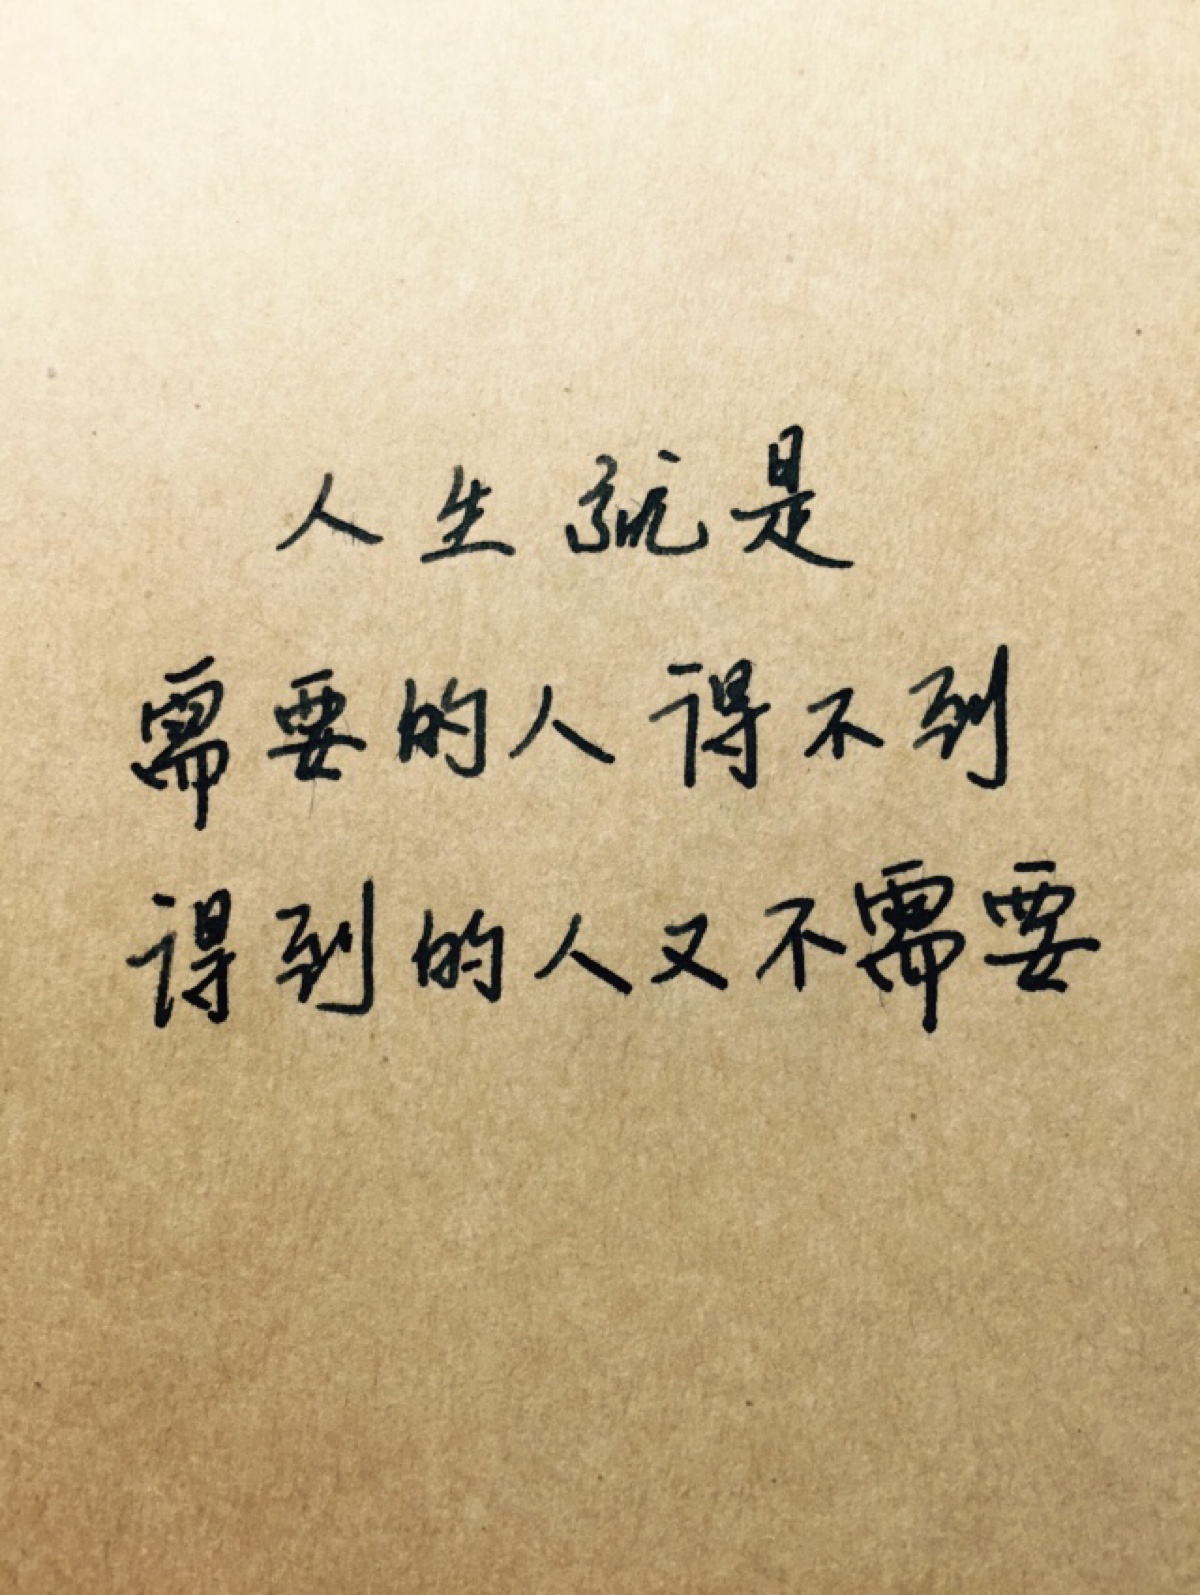 人生就是
需要的人得不到
得到的人又不需要